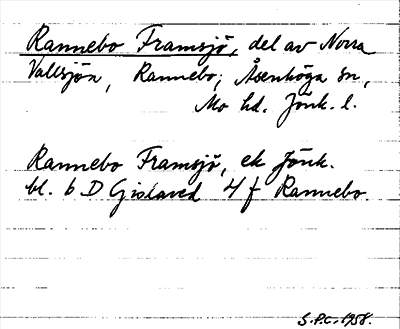 Rannebo Framsjö, del av Norra
Vallsjön, Rannebo; Åsenhöga sn,
Mo hd. Jönk. l.
Rannebo Framsjö, ek Jönk.
bl. 6 D Gislaved 4 f Rannebo.
S.P.C. 1958.